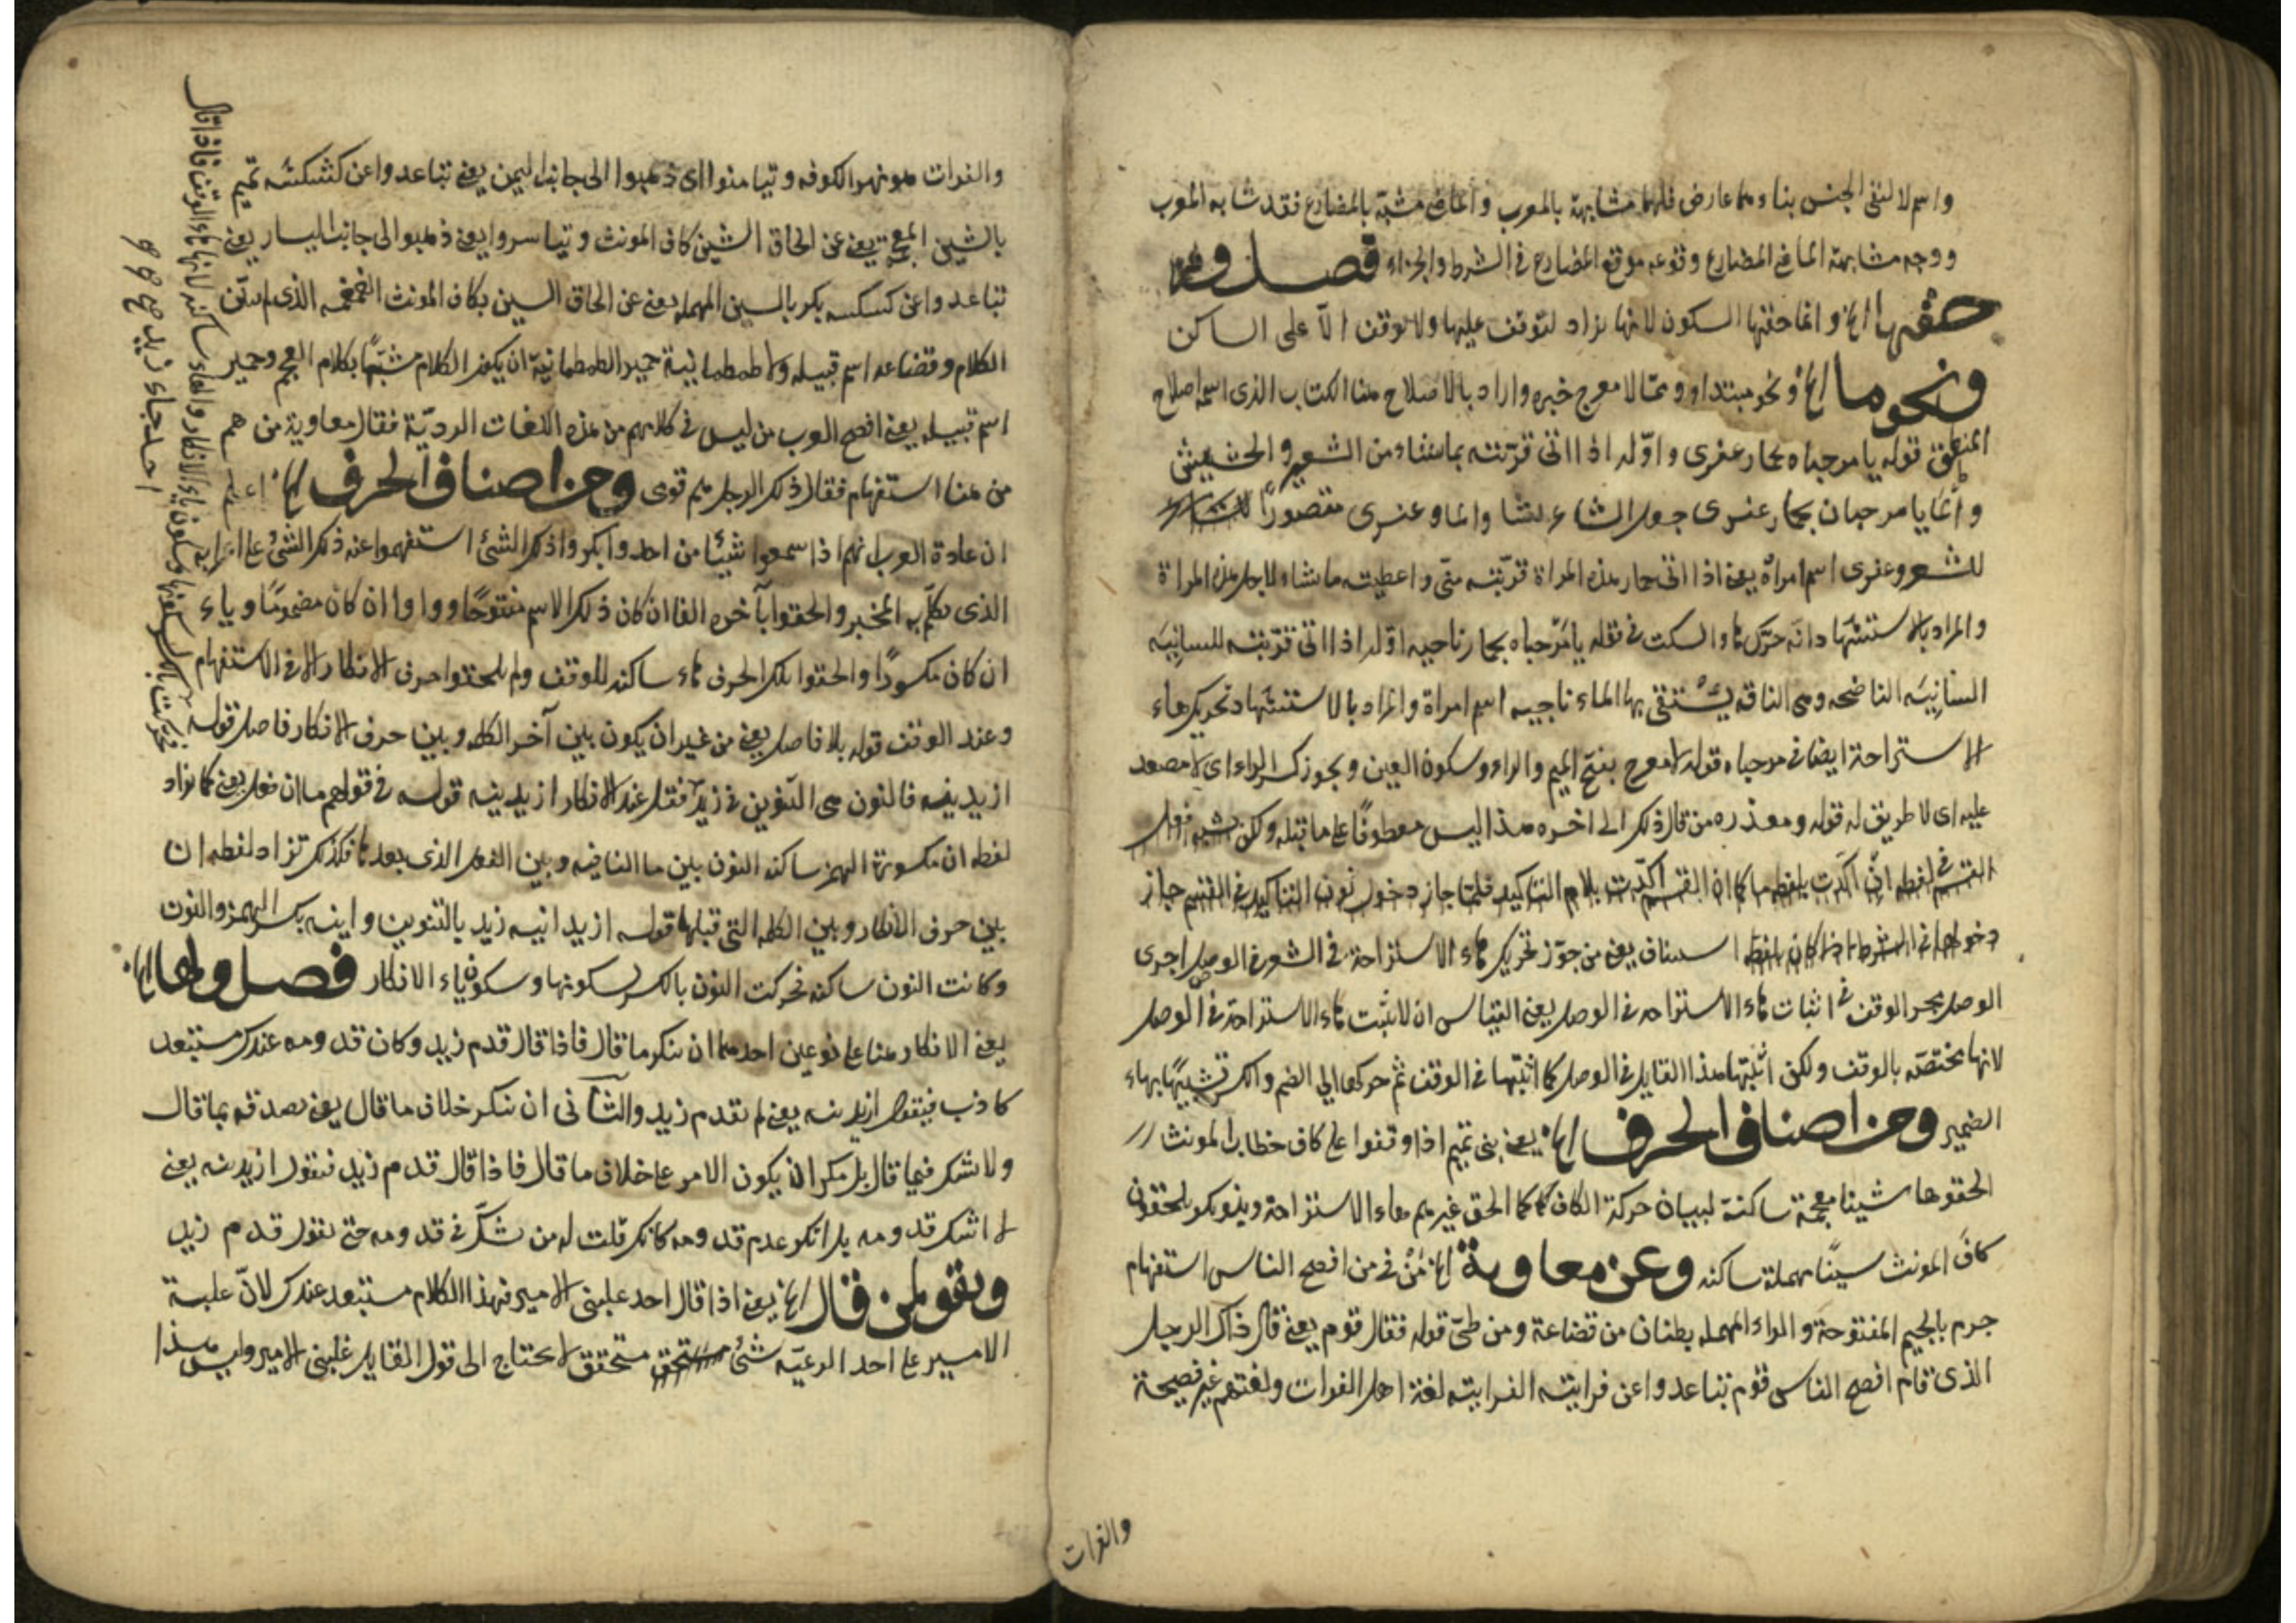 واسم لا لنفى الجنس بناءهما عارض فلهما مشابهة بالمعرب والماضى مشبّه بالمضارع فقد شابه المعرب
ووجه مشابهة الماضى المضارع وقوعه موقع المضارع فى الشرط والجزاء فصل ومن
حقها الخ وانما حقها السكون لانها يزاد لتوقف عليها ولا يوقف الّا على الساكن
ونحو ما الخ ونحو مبتداء وما لا معرج خبره واراد بالاصلاح هنا الكتاب الذى اسمه اصلاح
المنطق قوله يا مرحباه بحمار عفرى واوّله اذا اتى قرّبته بما شاء من الشعير والحشيش
وانما يا مرحبان بحمار عفرى جعل الشاء لشا والماء وعفرى مقصورًا
للشعر وعفرى اسم امراة يعنى اذا اتى حمار هذه المراة قرّبته منّى واعطيته ما شاء لاجل هذه المراة
والمراد بالاستشهاد انّه حرّك هاء السكت فى نقله يا مرحباه بحمار ناجيه اوّله اذا اتى قرّبته للسانِيَه
السانِيَه الناضحه وهى الناقه يُسْتقى بها الماء ناجيه اسم امراة والمراد بالاستشهاد تحريك هاء
الاستراحة ايضا فى مرحباه قوله لا معرج بفتح الميم والراء وسكون العين ويجوز كسر الراء اى لا مصعد
عليه اى لا طريق له قوله ومعذره من قال ذلك الى اخره هذا ليس معطوفًا على ما قبله ولكن شبه فعل
القسم فى لفظه انّ اكّدت بلفظه ما كما ان القسم اكّدت بلام التاكيد فلمّا جاز دخول نون التاكيد فى القسم جاز
دخولها فى الشرط اذا كان بلفظ استيناف يعنى من جوّز تحريك هاء الاستراحة فى الشعر فى الوصل اجرى
الوصل مجرى الوقف فى اثبات هاء الاستراحه فى الوصل يعنى القياس ان لا يثبت هاء الاستراحة فى الوصل
لانها مختصّه بالوقف ولكن اثبتها هذا القايل فى الوصل كما اثبتها فى الوقف ثم حركها الى الضم والكسر تشبيهًا بهاء
الضمير ومن اصناف الحرف الخ يعنى بنى تميم اذا وقفوا على كاف خطاب المونث
الحقوها شينا معجمة ساكنة لبيان حركة الكاف كما الحق غيرهم هاء الاستراحة وبنو بكر يلحقون
كافَ المونث سينًا مهملة ساكنه وعن معاوية الخ مَنْ فى من افصح الناس استفهام
جرم بالجيم المفتوحة والراء المهمله بطنان من قضاعة ومن طىّ قوله فقال قوم يعنى قال ذاك الرجل
الذى قام افصح الناس قوم تباعدوا عن فراتيه الفراتيه لغة اهل الفرات ولغتهم غير فصيحة
والفرات
والفرات هو نهر الكوفه وتيامنوا اى ذهبوا الى جانب اليمن يعنى تباعدوا عن كشكشه تميم
بالشين المعجمة يعنى عن الحاق الشين كاف المونث وتياسروا يعنى ذهبوا الى جانب اليسار يعنى
تباعدوا عن كسكسه بكر بالسين المهمله يعنى عن الحاق السين بكاف المونث الغمغمه الذى لم يبيّن
الكلام وقضاعه اسم قبيله ولا طمطمانية حمير الطمطمانيّة ان يكون الكلام مشبّهًا بكلام العجم وحمير
اسم قبيله يعنى افصح العرب من ليس فى كلامهم من هذه اللغات الرديّة فقال معاوية من هم
من هنا استفهام فقال ذلك الرجل هم قومى ومن اصناف الحرف الخ اعلم
ان عادة العرب انهم اذا سمعوا شيئًا من احد وانكروا ذلك الشئ استفهموا عنه ذكر الشئ على اعرابه
الذى تكلّم به المخبر والحقوا بآخره الفا ان كان ذلك الاسم مفتوحًا وواوا ان كان مضمومًا وياء
ان كان مكسورًا والحقوا بذلك الحرف هاء ساكنه للوقف ولم يلحقوا حرف الانكار الا فى الاستفهام
وعند الوقف قوله بلا فاصل يعنى من غير ان يكون بين آخر الكلمه وبين حرف الانكار فاصل قوله
ازيد نيه فالنون هى التنوين فى زيد فقيل عند الانكار ازيد نيه قوله فى قولهم ما ان فعل يعنى كما تزاد
لفظه ان مكسورة الهمز ساكنه النون بين ما النافيه وبين الفعل الذى بعدها فكذلك تزاد لفظه ان
بين حرف الانكار وبين الكلمه التى قبلها قوله ازيد انيه زيد بالتنوين وانيه بكسر الهمز والنون
وكانت النون ساكنه فحركت النون بالكسر لسكونها وسكون ياء الانكار فصل ولها الخ
يعنى الانكار هنا على نوعين احدهما ان ينكر ما قال فاذا قال قدم زيد وكان قدومه عندك مستبعد
كاذب فيقول ازيد نيه يعنى لم يقدم زيد والثانى ان ينكر خلاف ما قال يعنى يصدقه بما قال
ولا شك فيما قال بل ينكر ان يكون الامر على خلاف ما قال فاذا قال قدم زيد فيقول ازيد نيه يعنى
لا اشك قدومه بل انكر عدم قدومه كانك قلت له من شكّ فى قدومه حتى تقول قدم زيد
ويقول لمن قال الخ يعنى اذا قال احد غلبنى الامير فهذا الكلام مستبعد عندك لانّ غلبة
الامير على احد الرعيّه شئ متحقق لا يحتاج الى قول القايل غلبنى الامير وليس هذا
فحركت بالكسر لسكونها وسكون ياء الانكار والهاء ساكنه لانها هاء الوقف فاذا قال
احد جاء زيد